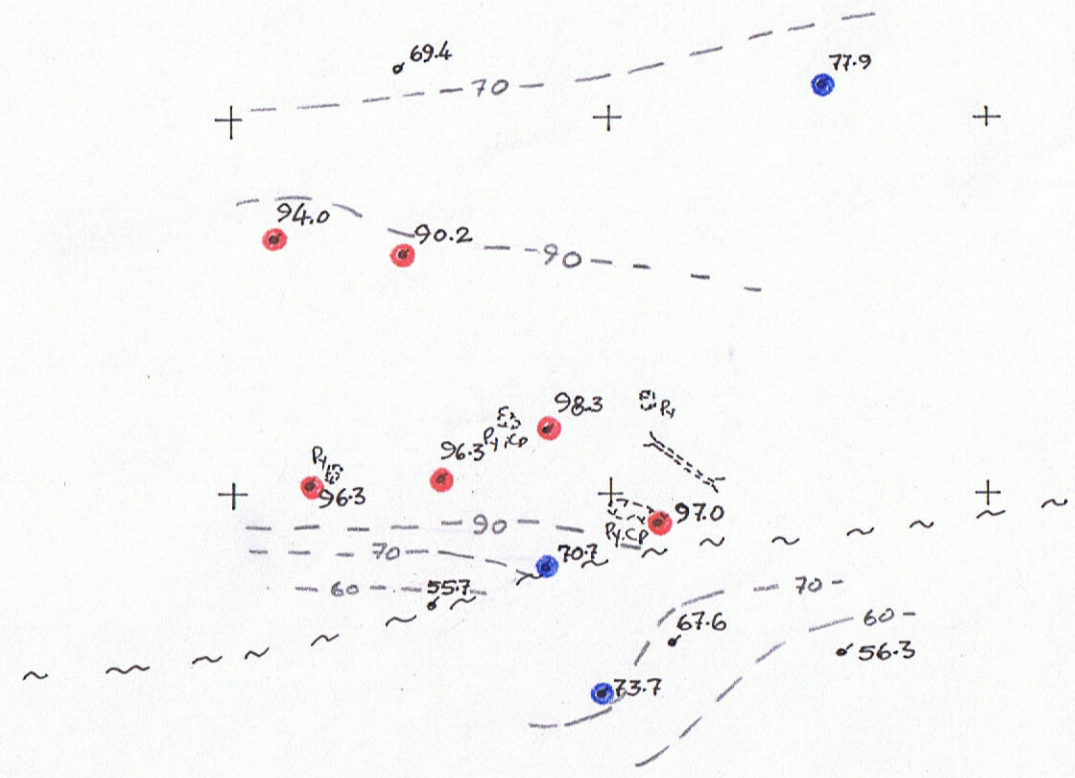 69.4
77.9
70
94.0
90.2
90
98.3
Py
96.3
Py, cp
Py
96.3
97.0
90
Py. cp
70
70.7
60
55.7
70
67.6
60
56.3
73.7